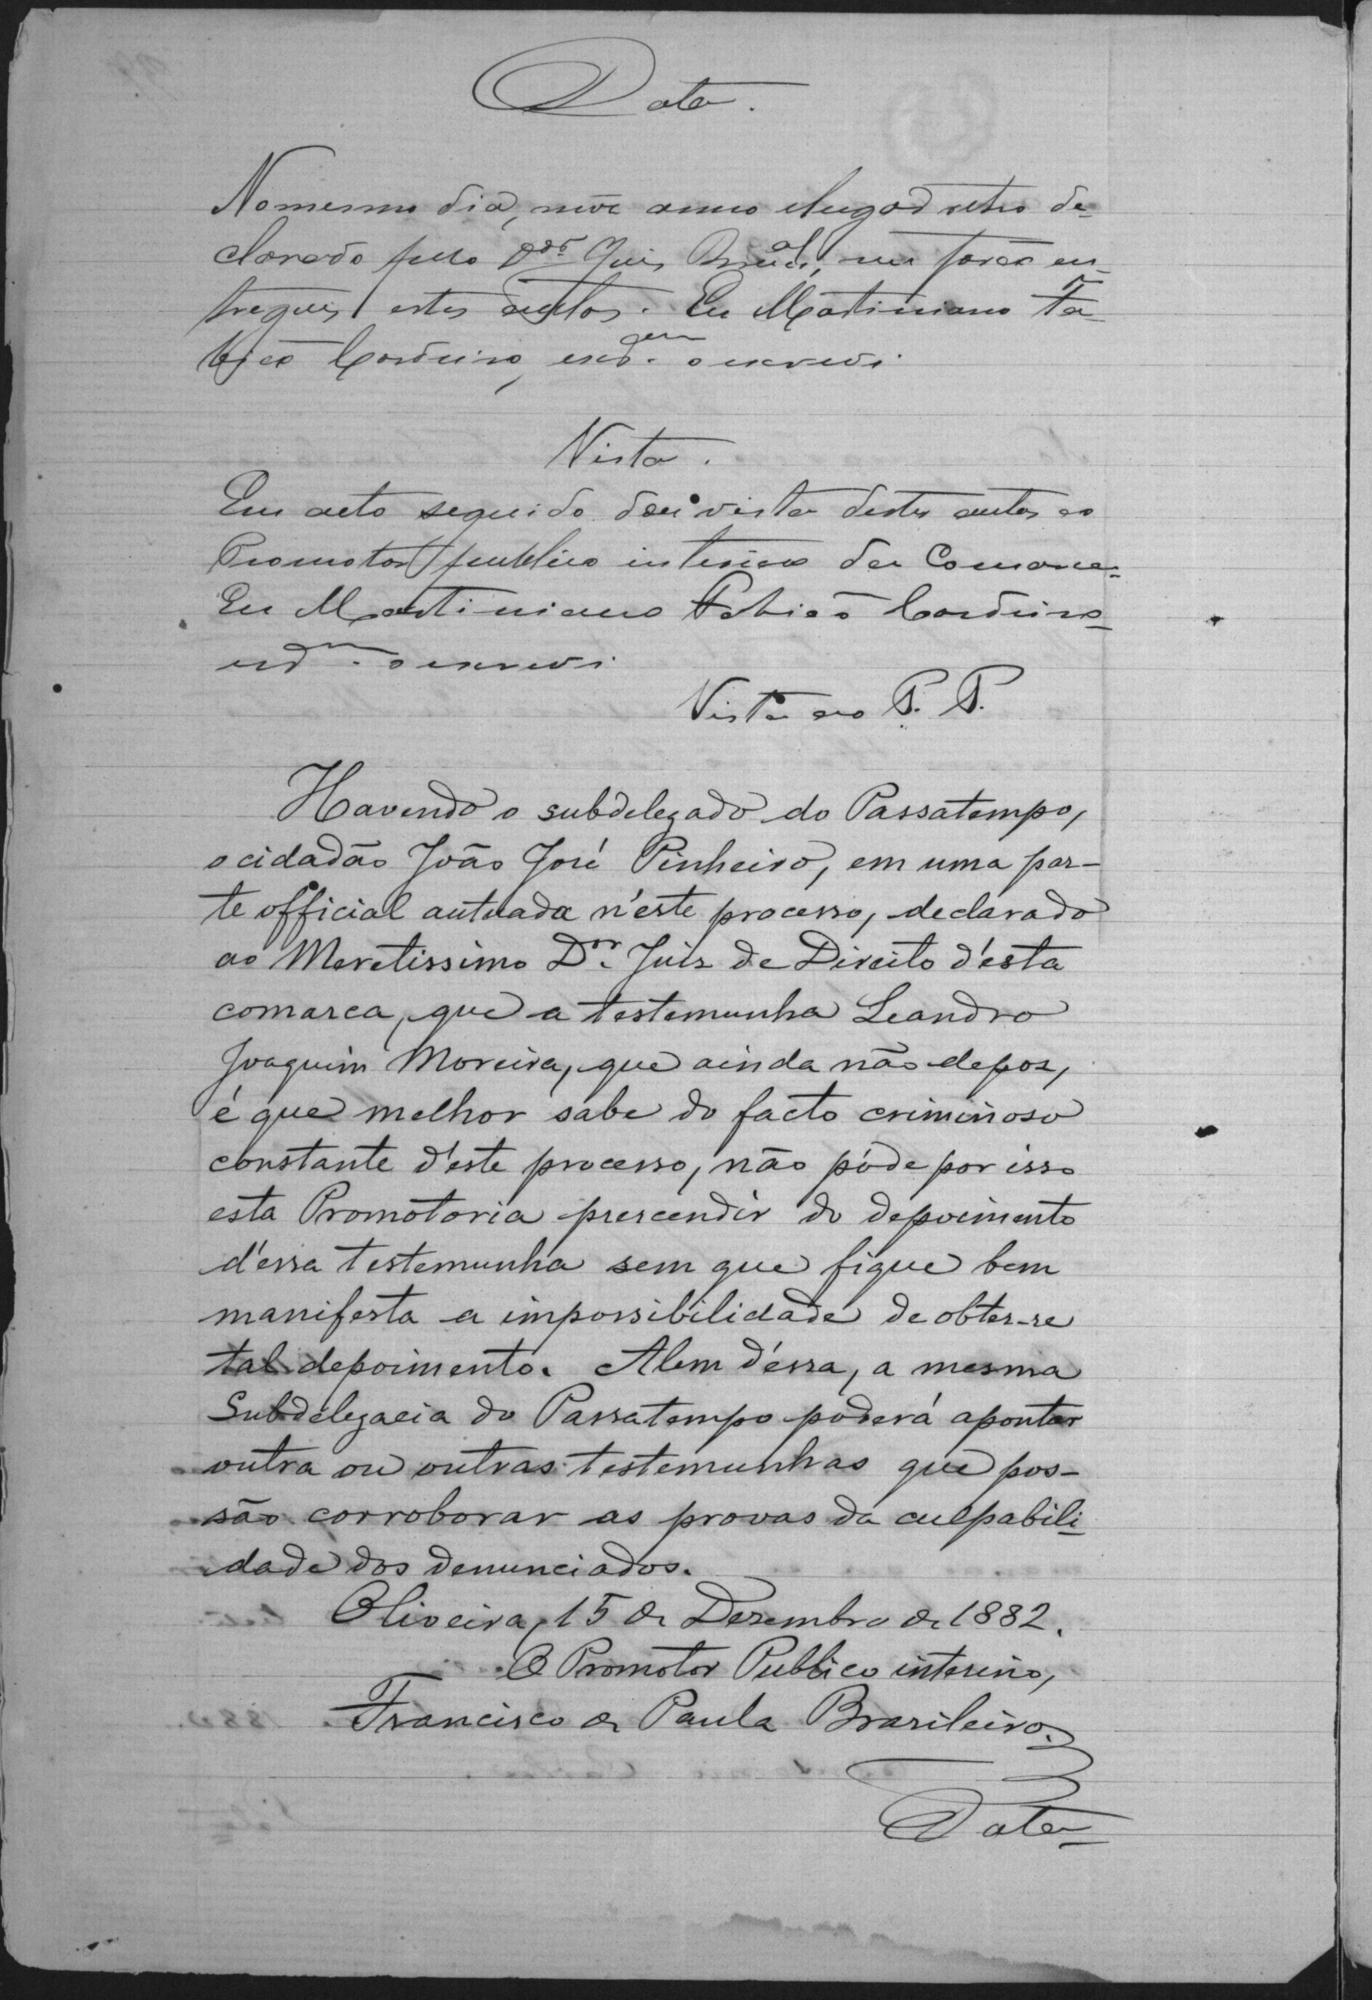 Data.
No mesmo dia, mez anno e lugar retro de-
clarado pelo Dor. Juiz Munal, me forão en-
tregues estes autos. Eu Martiniano Fa-
bião Cordeiro, escram. o escrevi
Vista.
Em acto seguido dou vista destes autos ao
Promotor publico interino da Comarca.
Eu Martiniano Fabião Cordeiro
escram. o escrevi.
Vista ao P. P.
Havendo o subdelegado do Passatempo,
o cidadão João José Pinheiro, em uma par-
te official autuada n'este processo, declarado
ao Meretissimo Dr. Juiz de Direito d'esta
comarca, que a testemunha Leandro
Joaquim Moreira, que ainda não depoz,
é que melhor sabe do facto criminoso
constante d'este processo, não póde por isso
esta Promotoria prescendir do depoimento
d'essa testemunha sem que fique bem
manifesta a impossibilidade de obter-se
tal depoimento. Alem d'essa, a mesma
Subdelegacia do Passatempo poderá apontar
outra ou outras testemunhas que pos-
são corroborar as provas da culpabili-
dade dos denunciados.
Oliveira, 15 de Dezembro de 1882.
O Promotor Publico interino,
Francisco de Paula Brasileiro.
Data